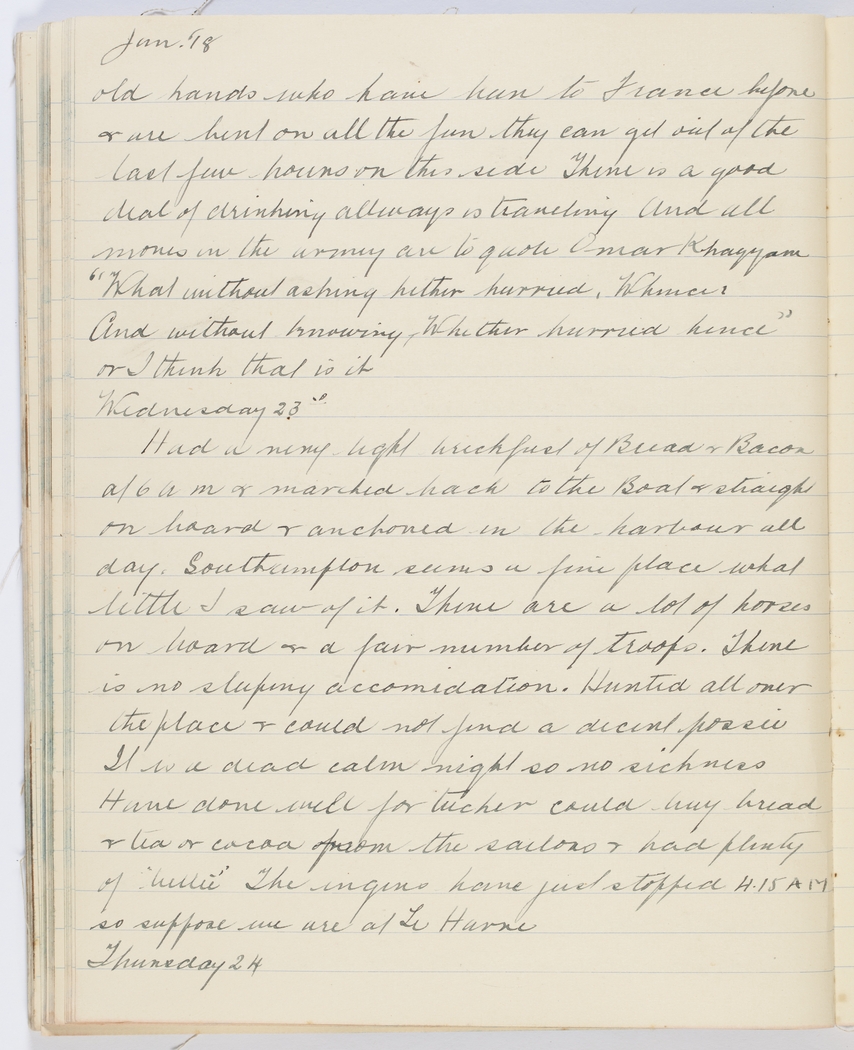 Jan. '18
old hands who have been to France before
& are bent on all the fun they can get out of the
last few hours on this side There is a good
deal of drinking allways is traveling And all
moves in the army are to quote Omar Khayyam
"What without asking hither hurried, Whence?
And without knowing, Whether hurried hence"
or I think that is it
Wednesday 23rd
Had a very light breckfast of Bread & Bacon
at 6 a m & marched back to the Boat & straight
on board & anchored in the harbour all
day. Southampton seems a fine place what
little I saw of it. There are a lot of horses
on board & a fair number of troops. There
is no sleeping accomidation. Hunted all over
the place & could not find a decent possie
It is a dead calm night so no sickness
Have done well for tucker could buy bread
& tea or cocoa from the sailors & had plenty
of "bullie" The ingens have just stopped 4.15 AM
so suppose we are at Le Havre
Thursday 24